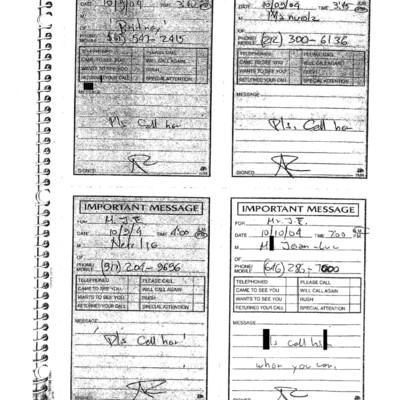 DATE 10/9/04 TIME 3:40
M
OF
PHONE/ MOBILE 547-2415
TELEPHONED PLEASE CALL
CAME TO SEE YOU WILL CALL AGAIN
WANTS TO SEE YOU RUSH
RETURNED YOUR CALL SPECIAL ATTENTION
MESSAGE
Pls call her
SIGNED
DATE 10/09/04 TIME 3:45
M
OF
PHONE/ MOBILE (212) 300-6136
TELEPHONED PLEASE CALL
CAME TO SEE YOU WILL CALL AGAIN
WANTS TO SEE YOU RUSH
RETURNED YOUR CALL SPECIAL ATTENTION
MESSAGE
Pls. Call her
SIGNED
IMPORTANT MESSAGE
FOR M. J.E.
DATE 10/9/4 TIME 4:00
M
OF
PHONE/ MOBILE (917) 204-9696
TELEPHONED PLEASE CALL
CAME TO SEE YOU WILL CALL AGAIN
WANTS TO SEE YOU RUSH
RETURNED YOUR CALL SPECIAL ATTENTION
MESSAGE
'Pls Call her'
SIGNED
IMPORTANT MESSAGE
FOR Mr. J.E.
DATE 10/10/04 TIME 7:00
M Jean-Luc
OF
PHONE/ MOBILE (646)
TELEPHONED PLEASE CALL
CAME TO SEE YOU WILL CALL AGAIN
WANTS TO SEE YOU RUSH
RETURNED YOUR CALL SPECIAL ATTENTION
MESSAGE
ls call
when you can.
SIGNED